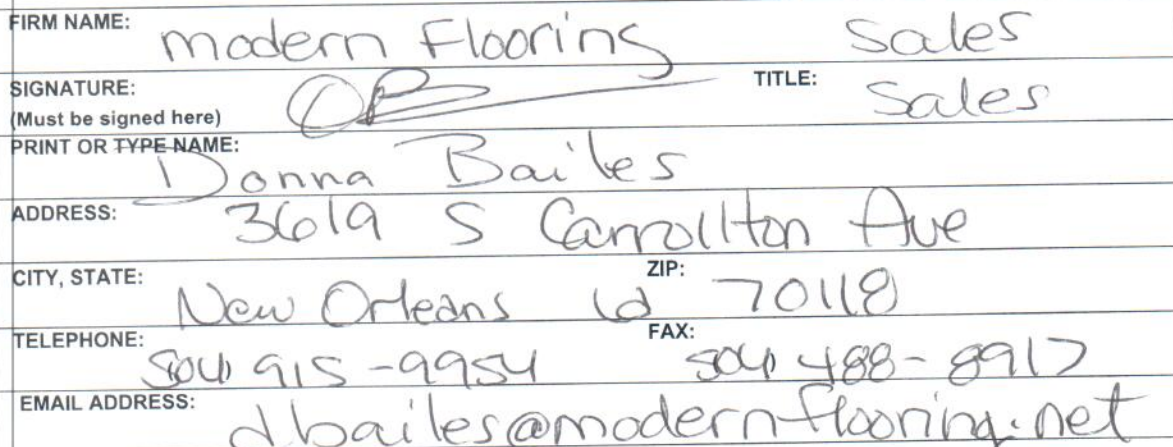 FIRM NAME: modern Flooring Sales
SIGNATURE: TITLE: Sales
(Must be signed here)
PRINT OR TYPE NAME: Donna Bailes
ADDRESS: 3619 S Carrollton Ave
CITY, STATE: New Orleans La ZIP: 70118
TELEPHONE: 504 915-9954 FAX: 504 488-8917
EMAIL ADDRESS: dbailes@modernflooring.net